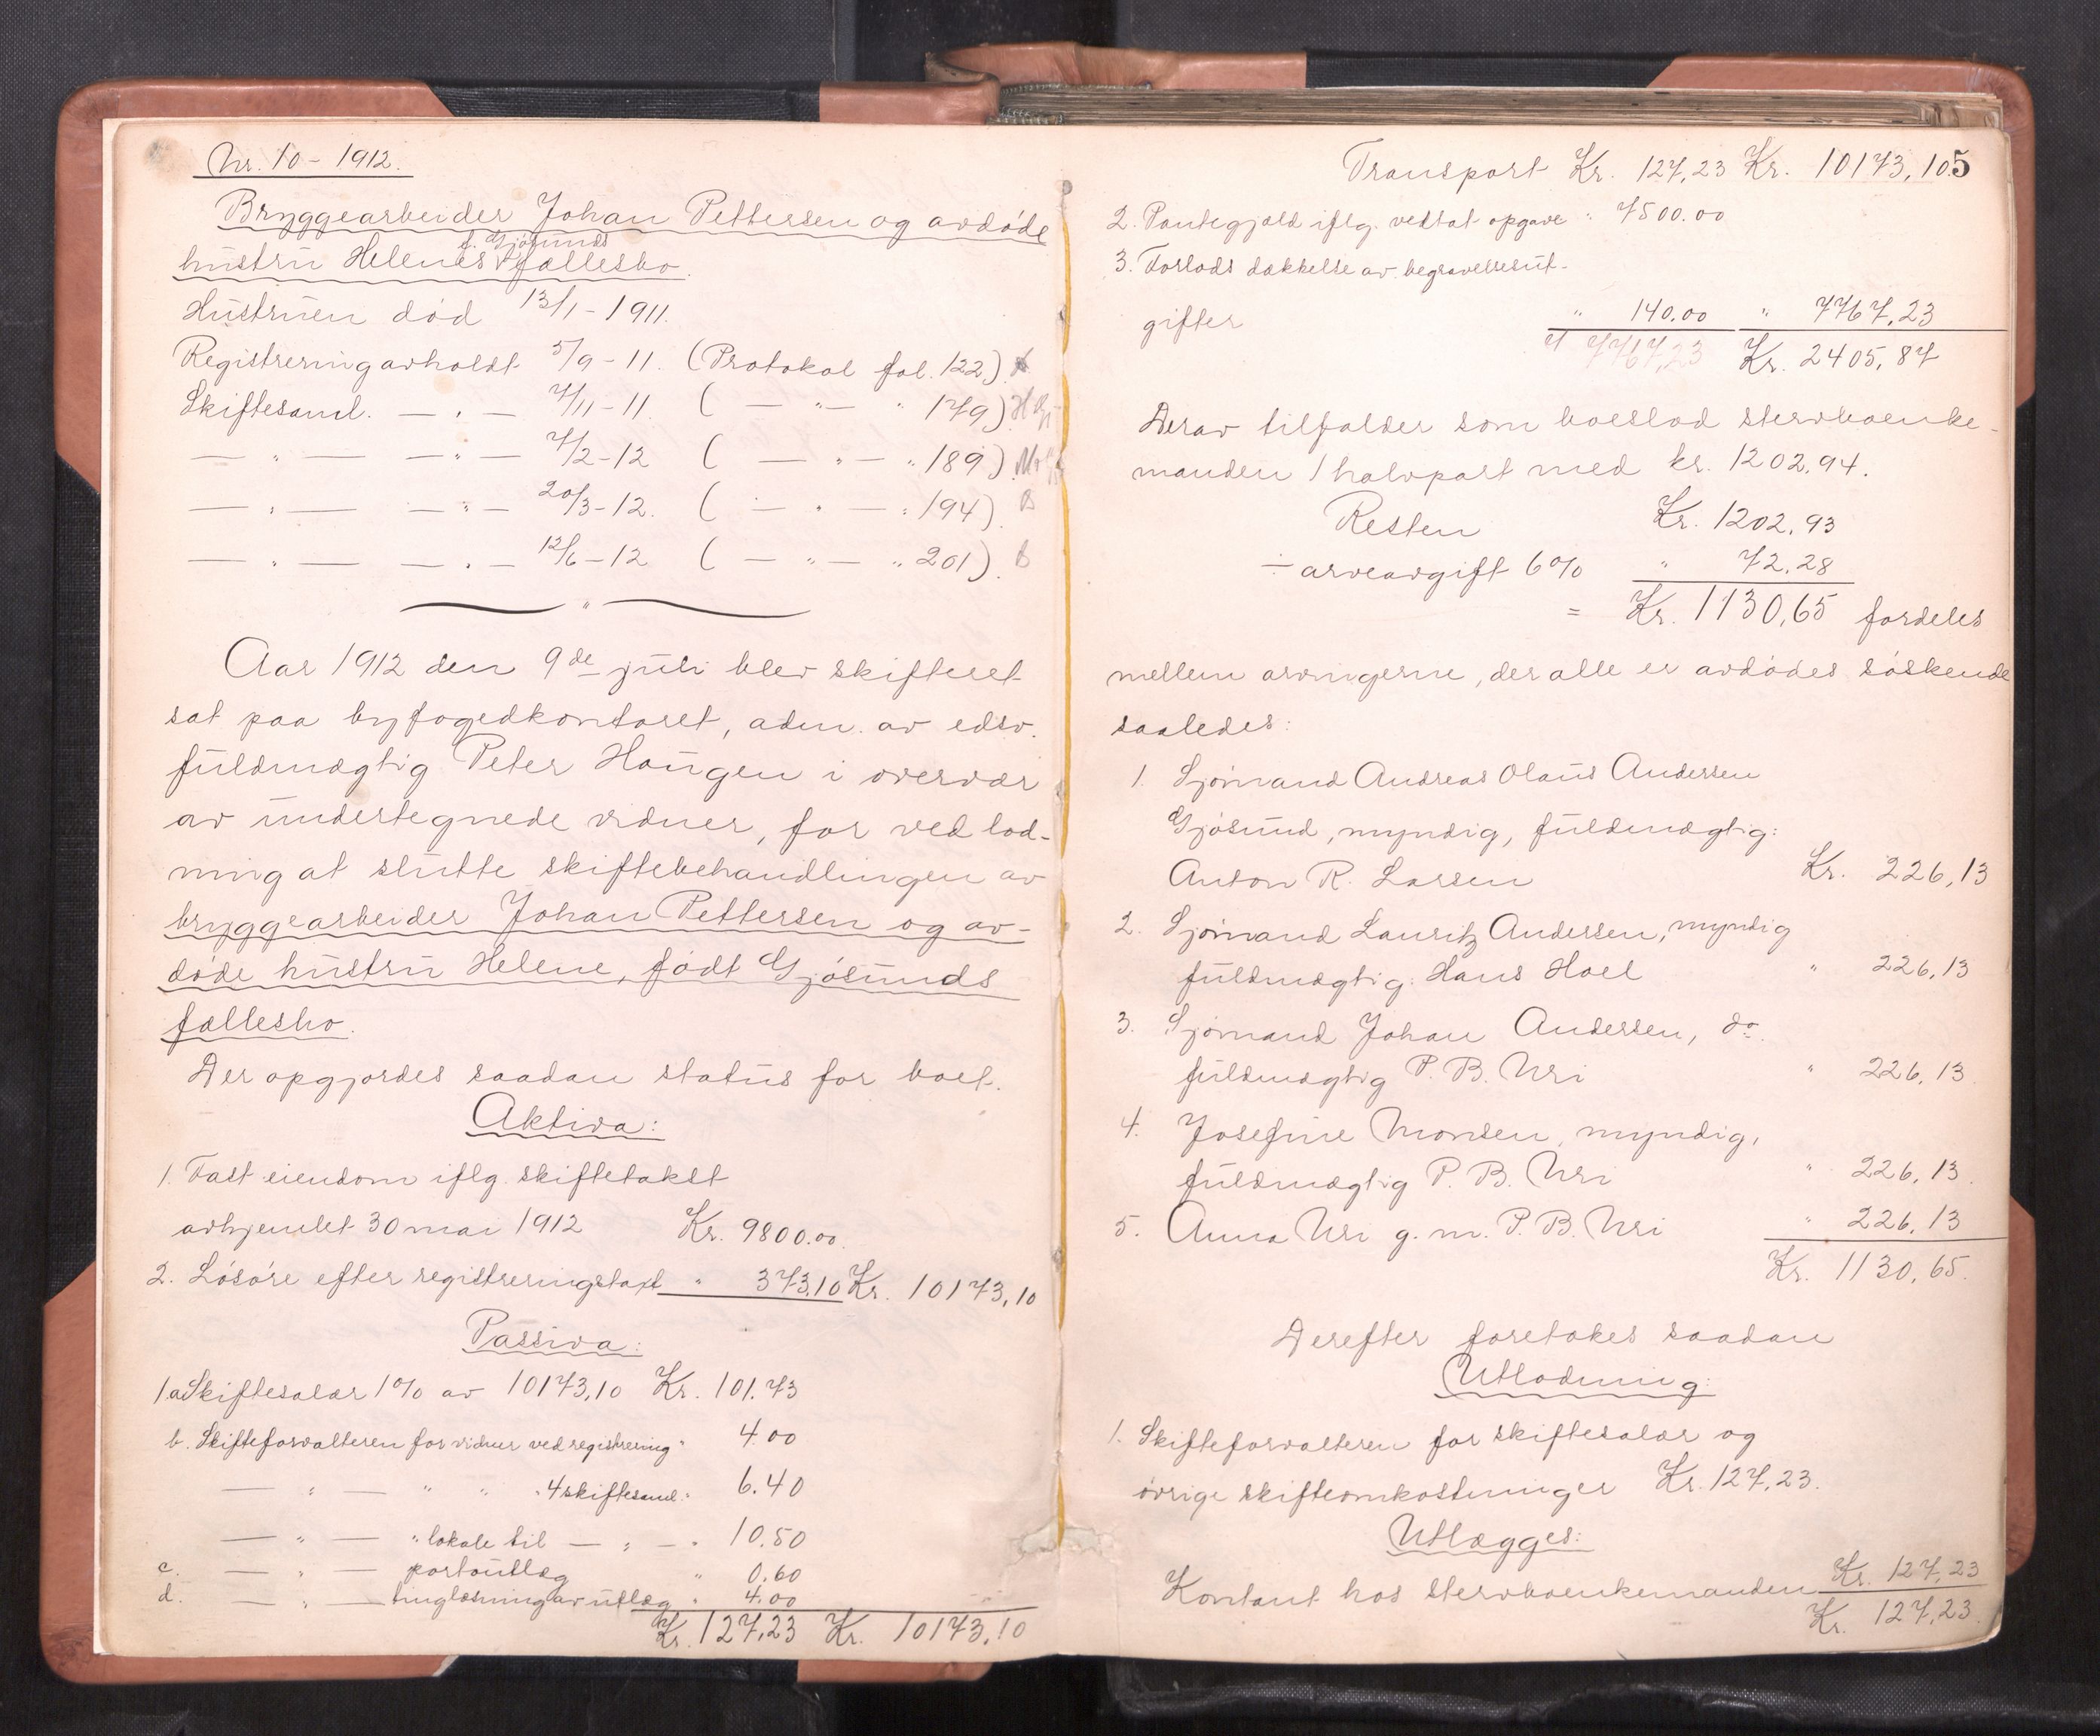 Nr. 10 - 1912.
Bryggearbeider Johan Pettersen og avdøde
f. Gjøsunds
hustru Helenes fællesbo.
Hustruen død 13/1 - 1911.
Registrering avholdt 5/9 - 11. (Protokol fol. 122).
Skiftesaml. — " — 7/11 - 11. ( — " — " 179).
— " — — " — 7/2 - 12 ( — " — " 189).
— " — — " — 20/3 - 12. ( — " — " 194). B
— " — — " — 12/6 - 12 ( — " — " 201). B
Aar 1912 den 9de juli blev skifteret
sat paa byfogedkontoret, adm. av edsv.
fuldmægtig Peter Haugen i overvær
av undertegnede vidner, for ved lod-
ning at slutte skiftebehandlingen av
bryggearbeider Johan Pettersen og av-
døde hustru Helene, født Gjøsunds
fællesbo.
Der opgjordes saadan status for boet.
Aktiva:
1. Fast eiendom iflg. skiftetakst
avhjemlet 30 mai 1912 Kr. 9800.00
2. Løsøre efter registreringstaxt " 373.10 Kr. 10173,10
Passiva:
1. a Skiftesalær 1% av 10173,10 Kr. 101.73
b. Skifteforvalteren for vidner ved registrering " 4.00
— " — " " " 4 skiftesaml. " 6.40
— " — " lokale til — " — " 10.50
c. — " — portoutlæg " 0.60
d. — " — tinglæsning av utlæg " 4.00
Kr. 127,23 Kr. 10173,10
Transport Kr. 127,23 Kr. 10173,10
5
2. Pantegjæld iflg. vedtat opgave " 7500.00
3. Forlods dækkelse av begravelsesut-
gifter " 140.00 " 7767,23
7767,23 Kr. 2405,87
Derav tilfalder som boeslod stervboenke-
manden 1 halvpart med kr. 1202.94.
Resten Kr. 1202,93
÷ arveavgift 6% " 72.28
= Kr. 1130,65 fordeles
mellem arvingerne, der alle er avdødes søskende
saaledes:
1. Sjømand Andreas Olaus Andersen
Gjøsund, myndig, fuldmægtig:
Anton R. Larsen Kr. 226,13
2. Sjømand Lauritz Andersen, myndig
fuldmægtig: Hans Hoel " 226,13
3. Sjømand Johan Andersen, do.
fuldmægtig P. B. Uri " 226,13
4. Josefine Monsen, myndig,
fuldmægtig P. B. Uri " 226,13.
5. Anna Uri g. m. P. B. Uri " 226,13
Kr. 1130,65.
Derefter foretakes saadan
Utlodning:
1. Skifteforvalteren for skiftesalær og
øvrige skifteomkostninger Kr. 127,23.
Utlægges:
Kontant hos stervboenkemanden Kr. 127,23
Kr. 127,23.